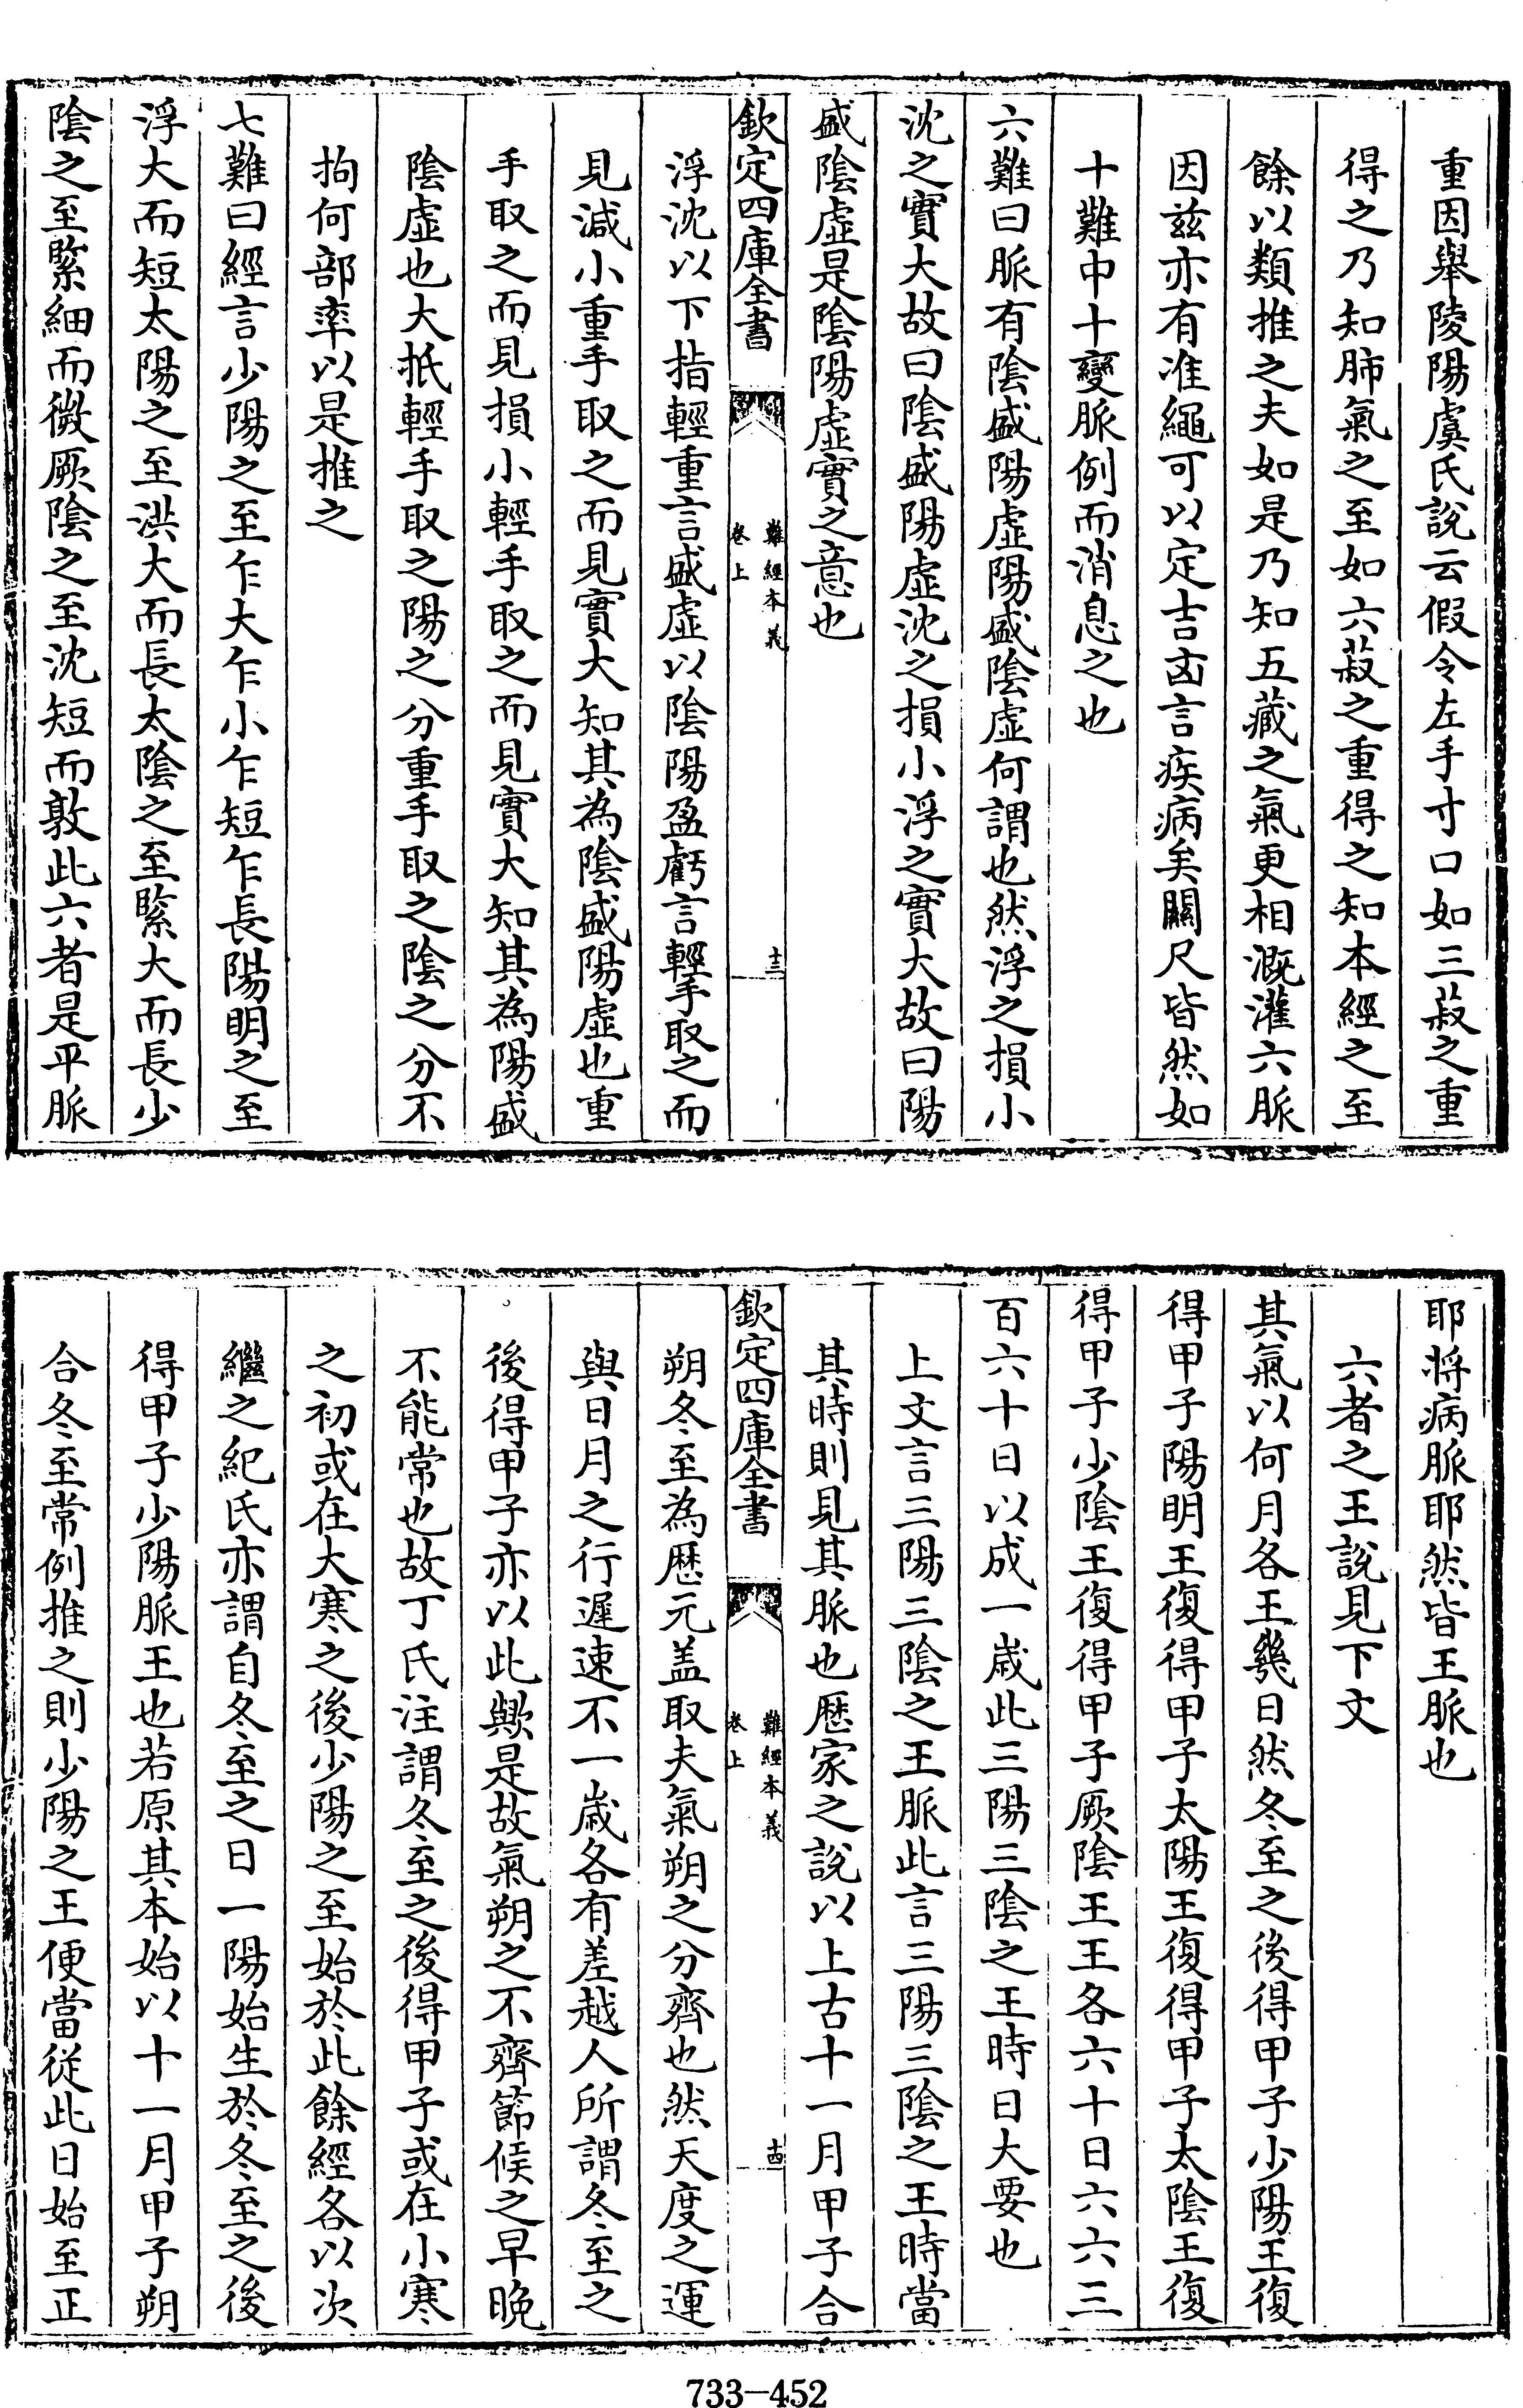 重因舉陵陽虞氏說云假令左手寸口如三菽之重
得之乃知肺氣之至如六菽之重得之知本經之至
餘以類推之夫如是乃知五藏之氣更相溉灌六脈
因兹亦有准繩可以定吉凶言疾病矣關尺皆然如
十難中十變脈例而消息之也
六難曰脈有陰盛陽虛陽盛陰虛何謂也然浮之損小
沈之實大故曰陰盛陽虛沈之損小浮之實大故曰陽
盛陰虛是陰陽虛實之意也
欽定四庫全書
難經本義
卷上
十三
浮沈以下指輕重言盛虛以陰陽盈虧言輕手取之而
見減小重手取之而見實大知其為陰盛陽虛也重
手取之而見損小輕手取之而見實大知其為陽盛
陰虛也大抵輕手取之陽之分重手取之陰之分不
拘何部率以是推之
七難曰經言少陽之至乍大乍小乍短乍長陽明之至
浮大而短太陽之至洪大而長太陰之至緊大而長少
陰之至緊細而微厥陰之至沈短而敦此六者是平脈
耶將病脈耶然皆王脈也
六者之王說見下文
其氣以何月各王幾日然冬至之後得甲子少陽王復
得甲子陽明王復得甲子太陽王復得甲子太陰王復
得甲子少陰王復得甲子厥陰王王各六十日六六三
百六十日以成一歲此三陽三陰之王時日大要也
上文言三陽三陰之王脈此言三陽三陰之王時當
其時則見其脈也厯家之說以上古十一月甲子合
欽定四庫全書
難經本義
卷上
十四
朔冬至為厯元盖取夫氣朔之分齊也然天度之運
與日月之行遲速不一歲各有差越人所謂冬至之
後得甲子亦以此歟是故氣朔之不齊節候之早晚
不能常也故丁氏注謂冬至之後得甲子或在小寒
之初或在大寒之後少陽之至始於此餘經各以次
繼之紀氏亦謂自冬至之日一陽始生於冬至之後
得甲子少陽脈王也若原其本始以十一月甲子朔
合冬至常例推之則少陽之王便當從此日始至正
733-452